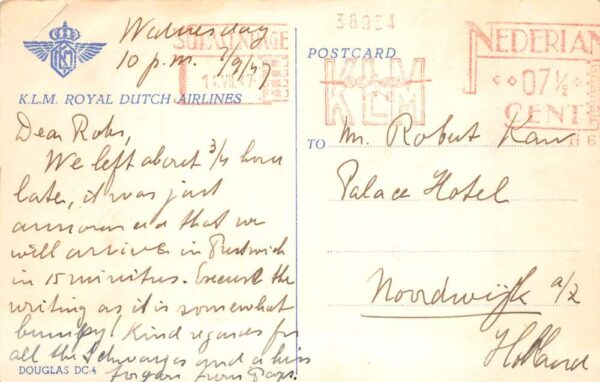 Wednesday
10 p.m. /9/47
K.L.M. ROYAL DUTCH AIRLINES
Dear Robs,
We left about 3/4 hour
late, it was just
announced that we
will arrive in Prestwick
in 15 minutes. Excuse the
writing as it is somewhat
bumpy! Kind regards for
all the Schwarzes and a kiss
for you from Paps.
DOUGLAS DC-4
38954
POSTCARD
KLM
NEDERLAN
07½
CENT
TO Mr. Robert
Palace Hotel
Noordwijk a/z
Holland